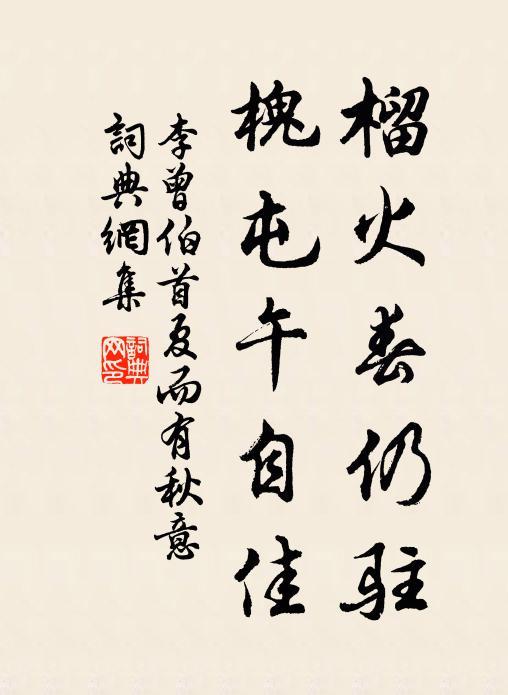 榴火春仍驻
槐屯午自佳
李曾伯首夏而有秋意
詞典網集
詞典
网印